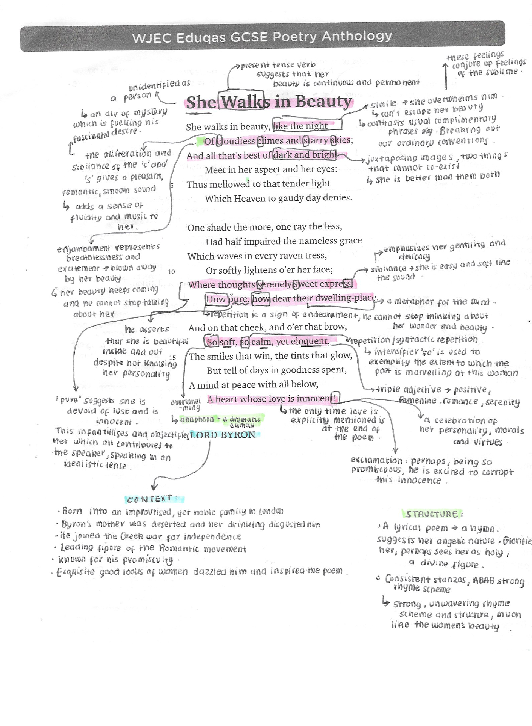 WJEC Eduqas GCSE Poetry Anthology
present tense verb
suggests that her
beauty is continuous and permanent
these feelings
conjure up feelings
of the sublime.
unidentified as
a person
↳ an air of mystery
which is fuelling his
desire.
She Walks in Beauty
simile → she overwhelms him -
can't escape her beauty
↳ contrasts usual complimentary
phrases - day - Breaking out
our ordinary conventions.
She walks in beauty, like the night
Of cloudless climes and starry skies;
And all that's best of dark and bright
Meet in her aspect and her eyes:
Thus mellowed to that tender light
Which Heaven to gaudy day denies.
the alliteration and
sibilance of the 's' and
's' gives a pleasant,
romantic, smooth sound
↳ adds a sense of
fluidity and music to
her.
juxtaposing images, two things
that cannot co-exist
↳ she is better than them both
One shade the more, one ray the less,
Had half impaired the nameless grace
Which waves in every raven tress,
Or softly lightens o'er her face;
Where thoughts serenely sweet express
How pure, how dear their dwelling-place.
5
10
15
enjambment represents
breathlessness and
excitement → blown away
by her beauty
↳ her beauty keeps coming
and he cannot stop talking
about her
emphasises her gentility and
sibilance → she is easy and soft like
the sound.
→ a metaphor for the mind.
repetition is a sign of endearment, he cannot stop thinking about
her wonder and beauty.
And on that cheek, and o'er that brow,
So soft, so calm, yet eloquent,
The smiles that win, the tints that glow,
But tell of days in goodness spent,
A mind at peace with all below,
A heart whose love is innocent!
LORD BYRON
he asserts
that she is beautiful
inside and out
despite not knowing
her personality
repetition/syntactic repetition
↳ intensifier 'so' is used to
exemplify the extent to which the
poet is marvelling at this woman
triple adjective → positive,
feminine, romance, serenity
'pure' suggests she is
devoid of lust and is
innocent.
This infantilises and objectifies
her which all contributes to
the speaker, speaking in an
idealistic tense.
↳ the only time love is
explicitly mentioned is
at the end of
the poem.
a celebration of
her personality, morals
and virtues.
exclamation: perhaps, being so
promiscuous, he is excited to corrupt
this innocence.
CONTEXT:
· Born into an impoverished, yet noble family in London
· Byron's mother was deserted and her drinking disgusted him
· He joined the Greek war for independence
· Leading figure of the Romantic movement
· Known for his promiscuity
· Exquisite good looks of women dazzled him and inspired the poem
STRUCTURE:
· A lyrical poem → a hymn.
suggests her angelic nature.
her, perhaps sees her as holy,
a divine figure.
· Consistent stanzas, ABAB strong
rhyme scheme
↳ strong, unwavering rhyme
scheme and structure, much
like the women's beauty